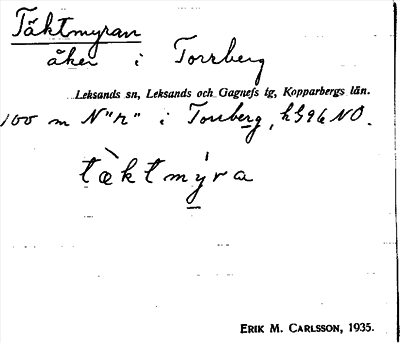 Täktmyran
åker i Torrberg
Leksands sn, Leksands och Gagnefs tg, Kopparbergs län.
100 m N "r" i Torrberg, h596 NO.
tæ̀ktmýra
ERIK M. CARLSSON, 1935.